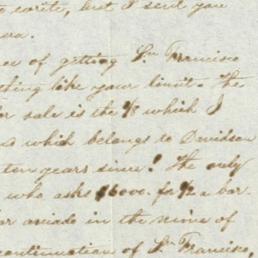 to write, but I send you
ce of getting Sn Francisco
thing like your limit. The
or sale is the 1/8 which I
us which belongs to Davidson
ten years since! The only
who asks $6000. for 1/2 a bar.
ar aviado in the mine of
continuation of Sn Francisco,